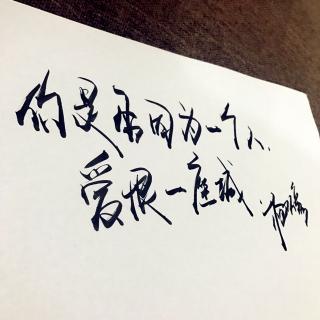 你是否因为一个人,
爱恨一座城